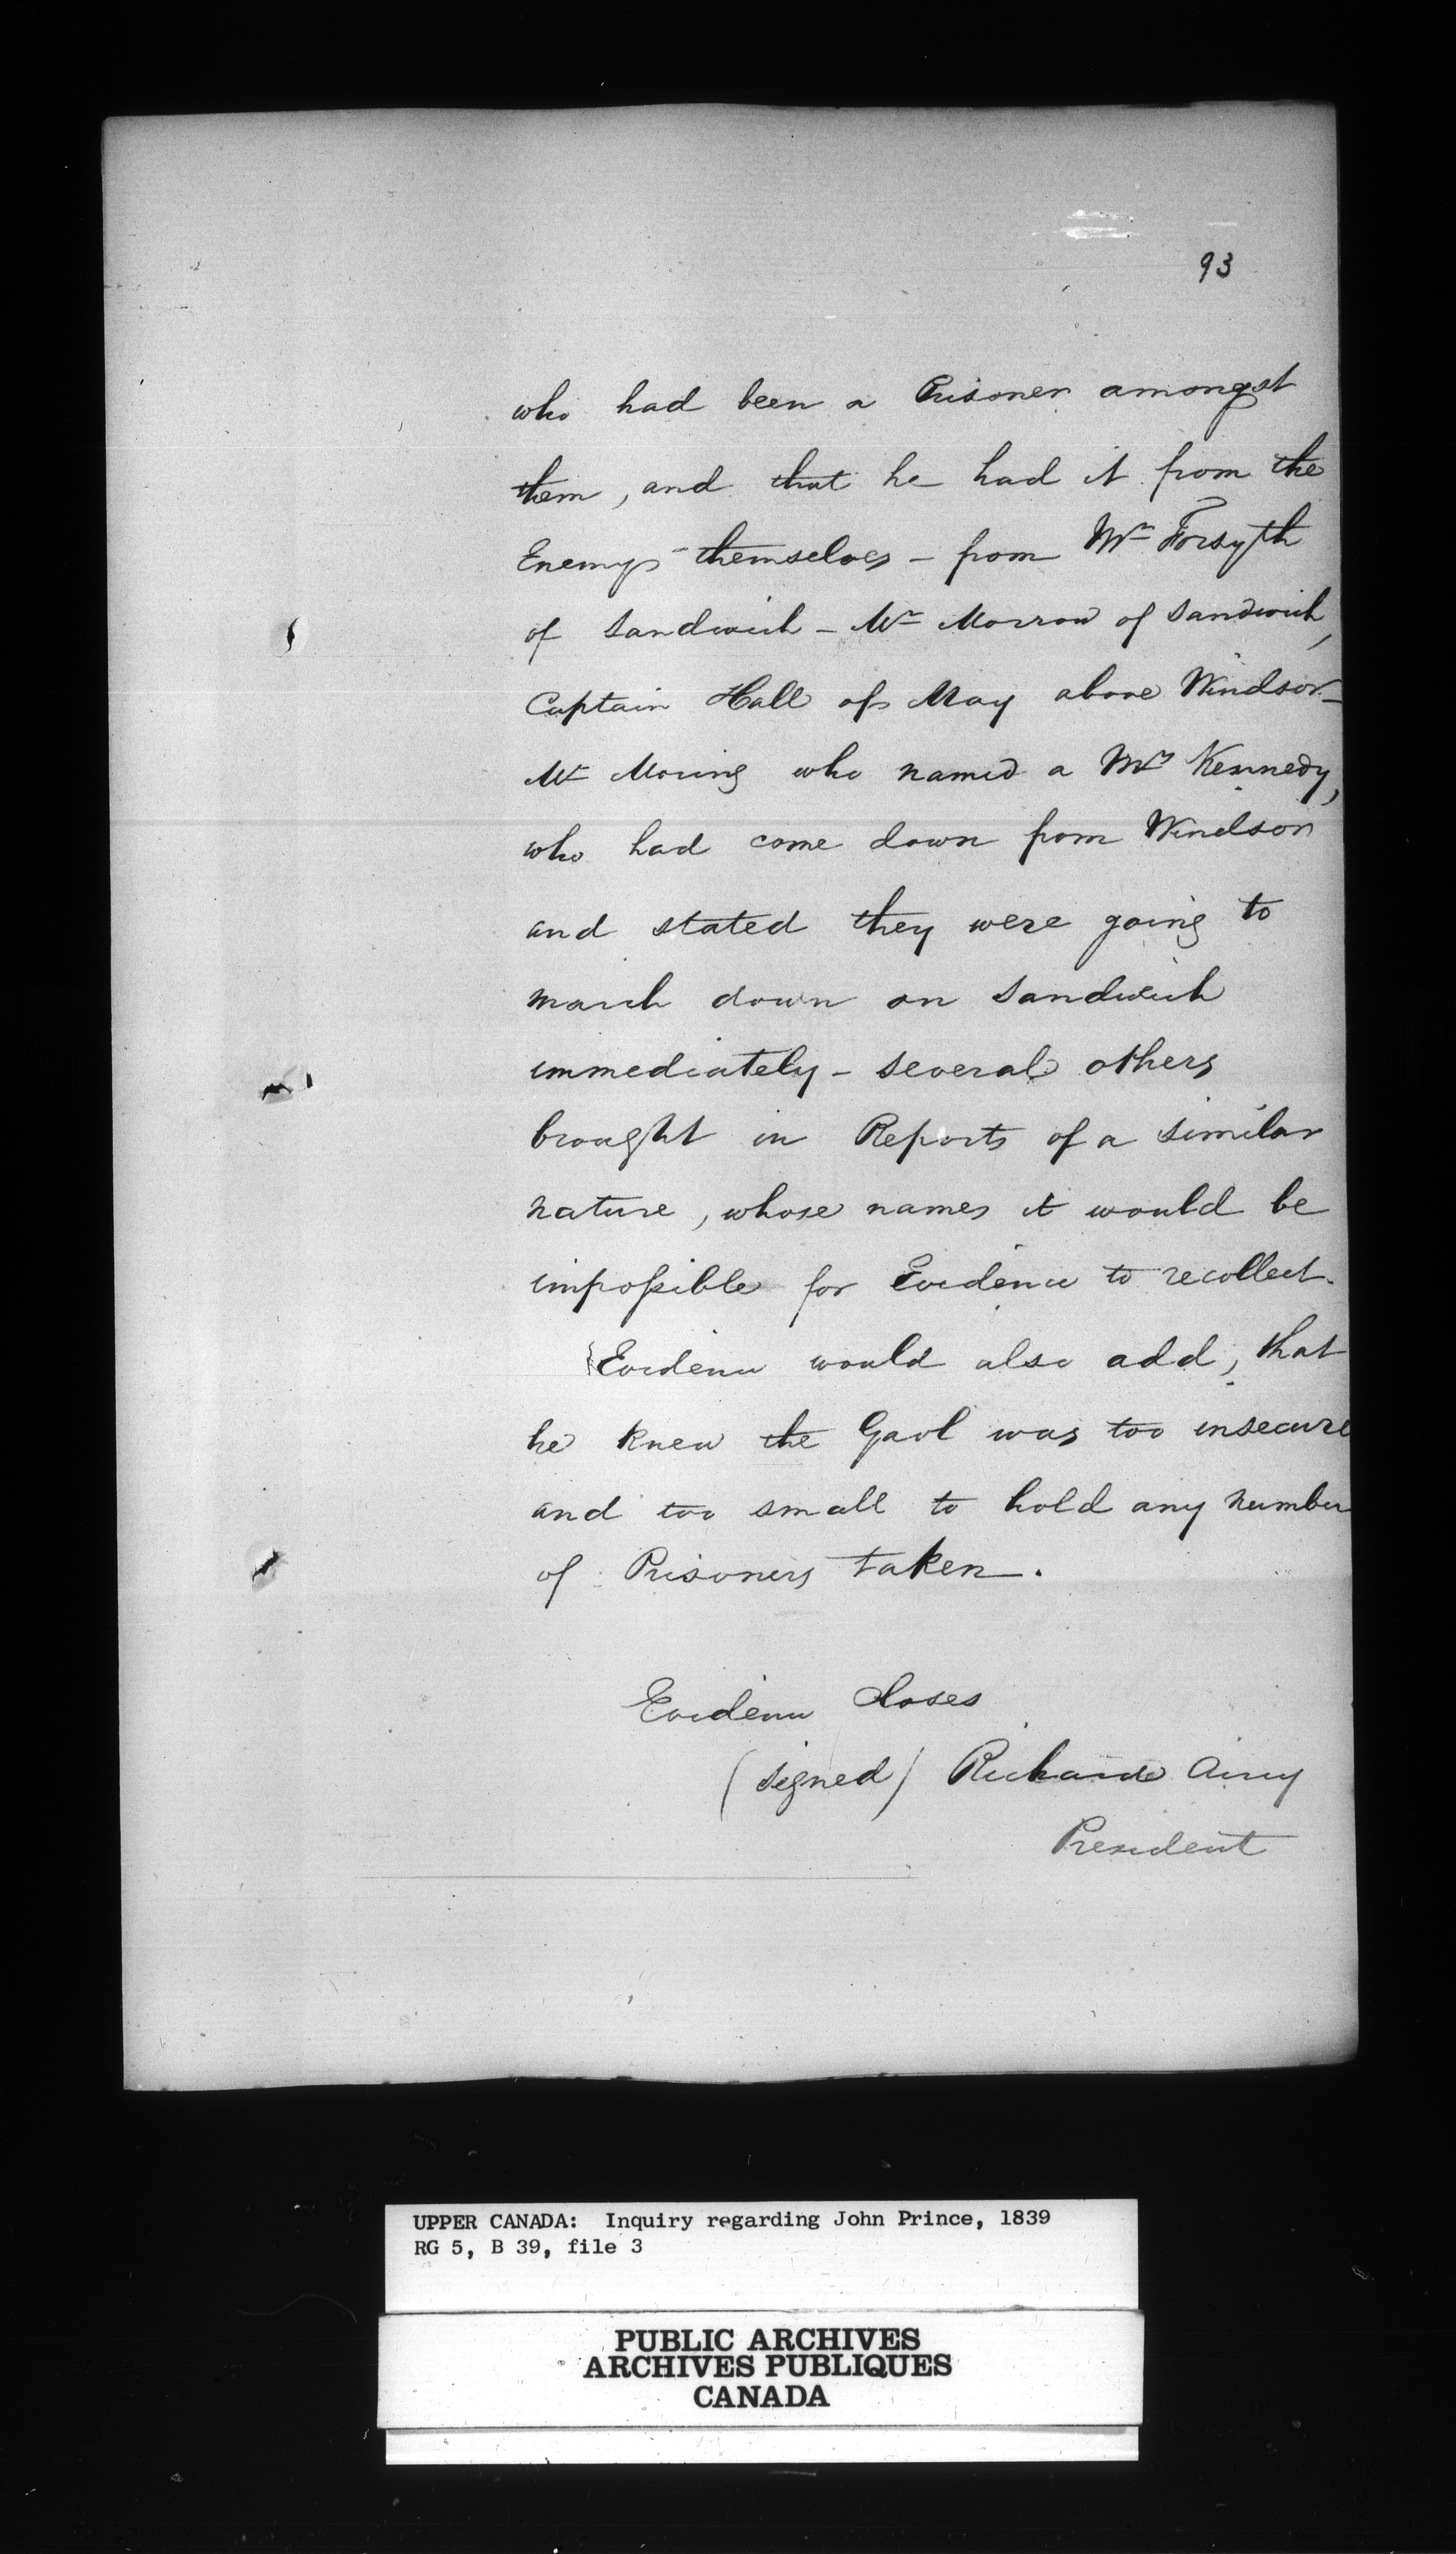 93
who had been a Prisoner amongst
them, and that he had it from the
Enemy themselves - from Mr Forsyth
of Sandwich - Mr Morrow of Sandwich,
Captain Hall of May above Windsor -
Mr Moring who named a Mrs Kennedy,
who had come down from Windsor
and stated they were going to
march down on Sandwich
immediately - several others
brought in Reports of a similar
nature, whose names it would be
impossible for Evidence to recollect.
Evidence would also add, that
he knew the Gaol was too insecure
and too small to hold any number
of Prisoners taken.
Evidence closes
(signed) Richard Airey
President
UPPER CANADA: Inquiry regarding John Prince, 1839
RG 5, B 39, file 3
PUBLIC ARCHIVES
ARCHIVES PUBLIQUES
CANADA